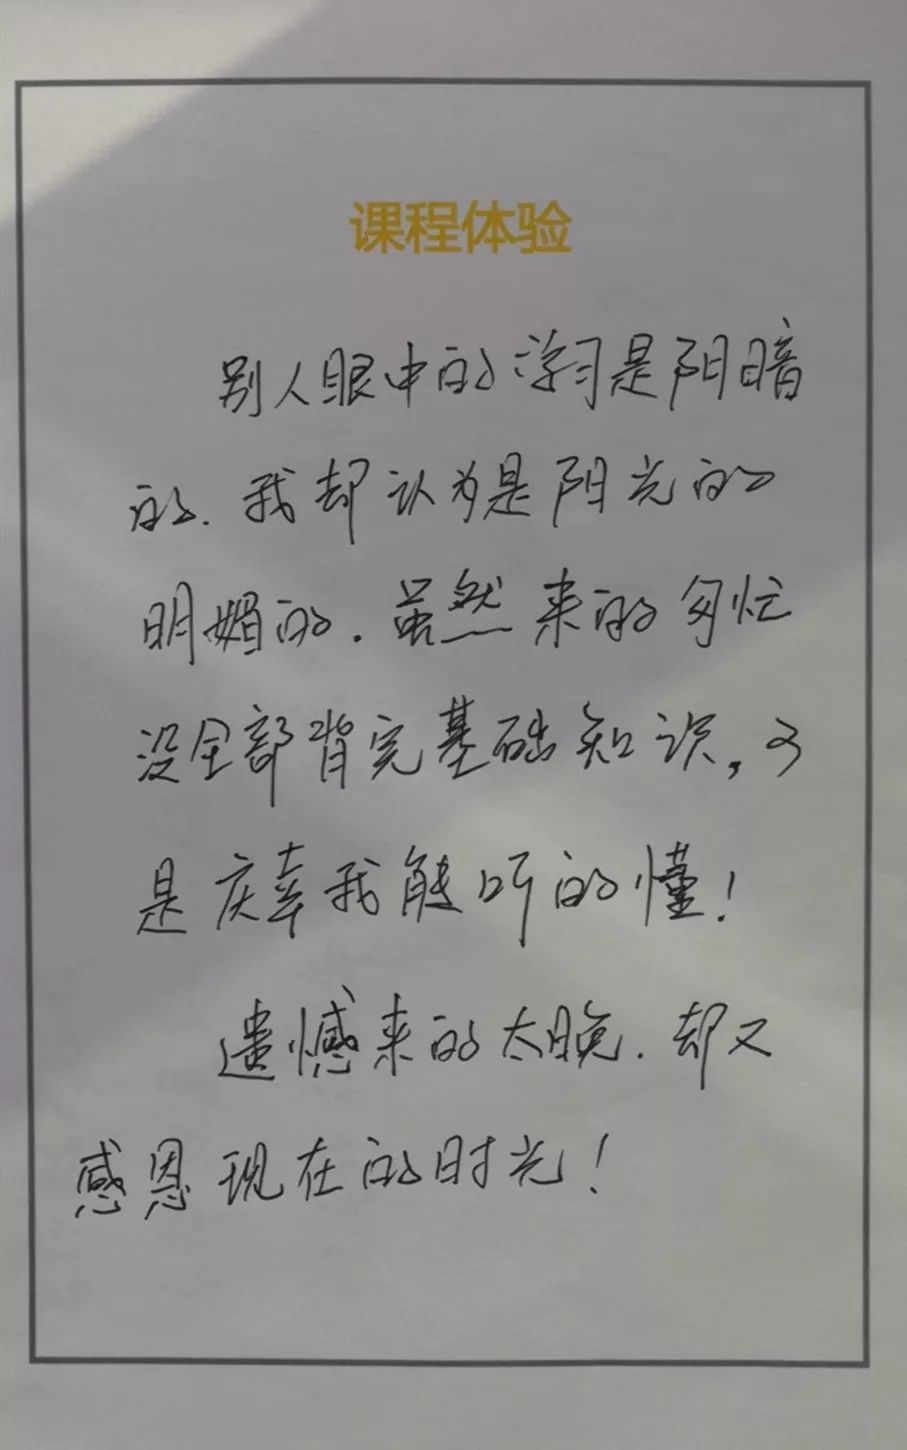 课程体验
别人眼中的学习是阴暗
的.我却认为是阳光的
明媚的.虽然来的匆忙
没全部背完基础知识,又
是庆幸我能听的懂!
遗憾来的太晚.却又
感恩现在的时光!